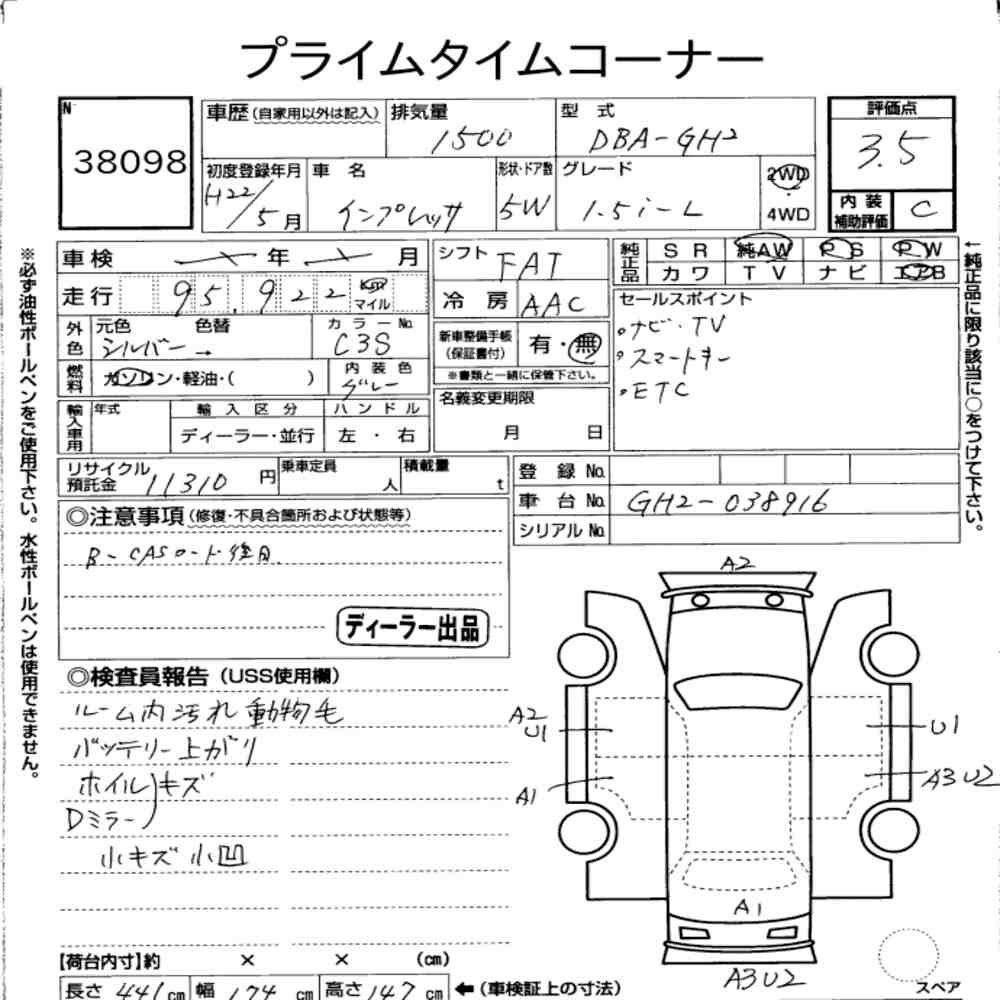 プライムタイムコーナー
№ 38098
車歴(自家用以外は記入) 排気量 1500 型式 DBA-GH2 評価点 3.5
初度登録年月 H22/5月 車名 インプレッサ 形状・ドア数 5W グレード 1.5i-L 2WD・4WD 内装補助評価 C
車検 年 月 シフト FAT 純正品 SR 純AW PS PW
走行 95,922 Km マイル 冷房 AAC カワ TV ナビ エアB
外色 元色 シルバー → 色替 カラーNo. C3S 新車整備手帳(保証書付) 有・無 ※書類と一緒に保管下さい。
セールスポイント
・ナビ・TV
・スマートキー
・ETC
燃料 ガソリン・軽油・( ) 内装色 グレー
輸入車用 年式 輸入区分 ディーラー・並行 ハンドル 左・右 名義変更期限 月 日
リサイクル預託金 11310円 乗車定員 人 積載量 t 登録No.
車台No. GH2-038916
シリアルNo.
◎注意事項(修復・不具合箇所および状態等)
B-CASカード後日
ディーラー出品
◎検査員報告(USS使用欄)
ルーム内汚れ 動物毛
バッテリー上がり
ホイル)キズ
Dミラー)
小キズ 小凹
A2
A2
U1
A1
U1
A3U2
A1
A3U2
スペア
【荷台内寸】約 × × (cm)
長さ 441cm 幅 174cm 高さ 147cm ←(車検証上の寸法)
※必ず油性ボールペンをご使用下さい。水性ボールペンは使用できません。
←純正品に限り該当に○をつけて下さい。